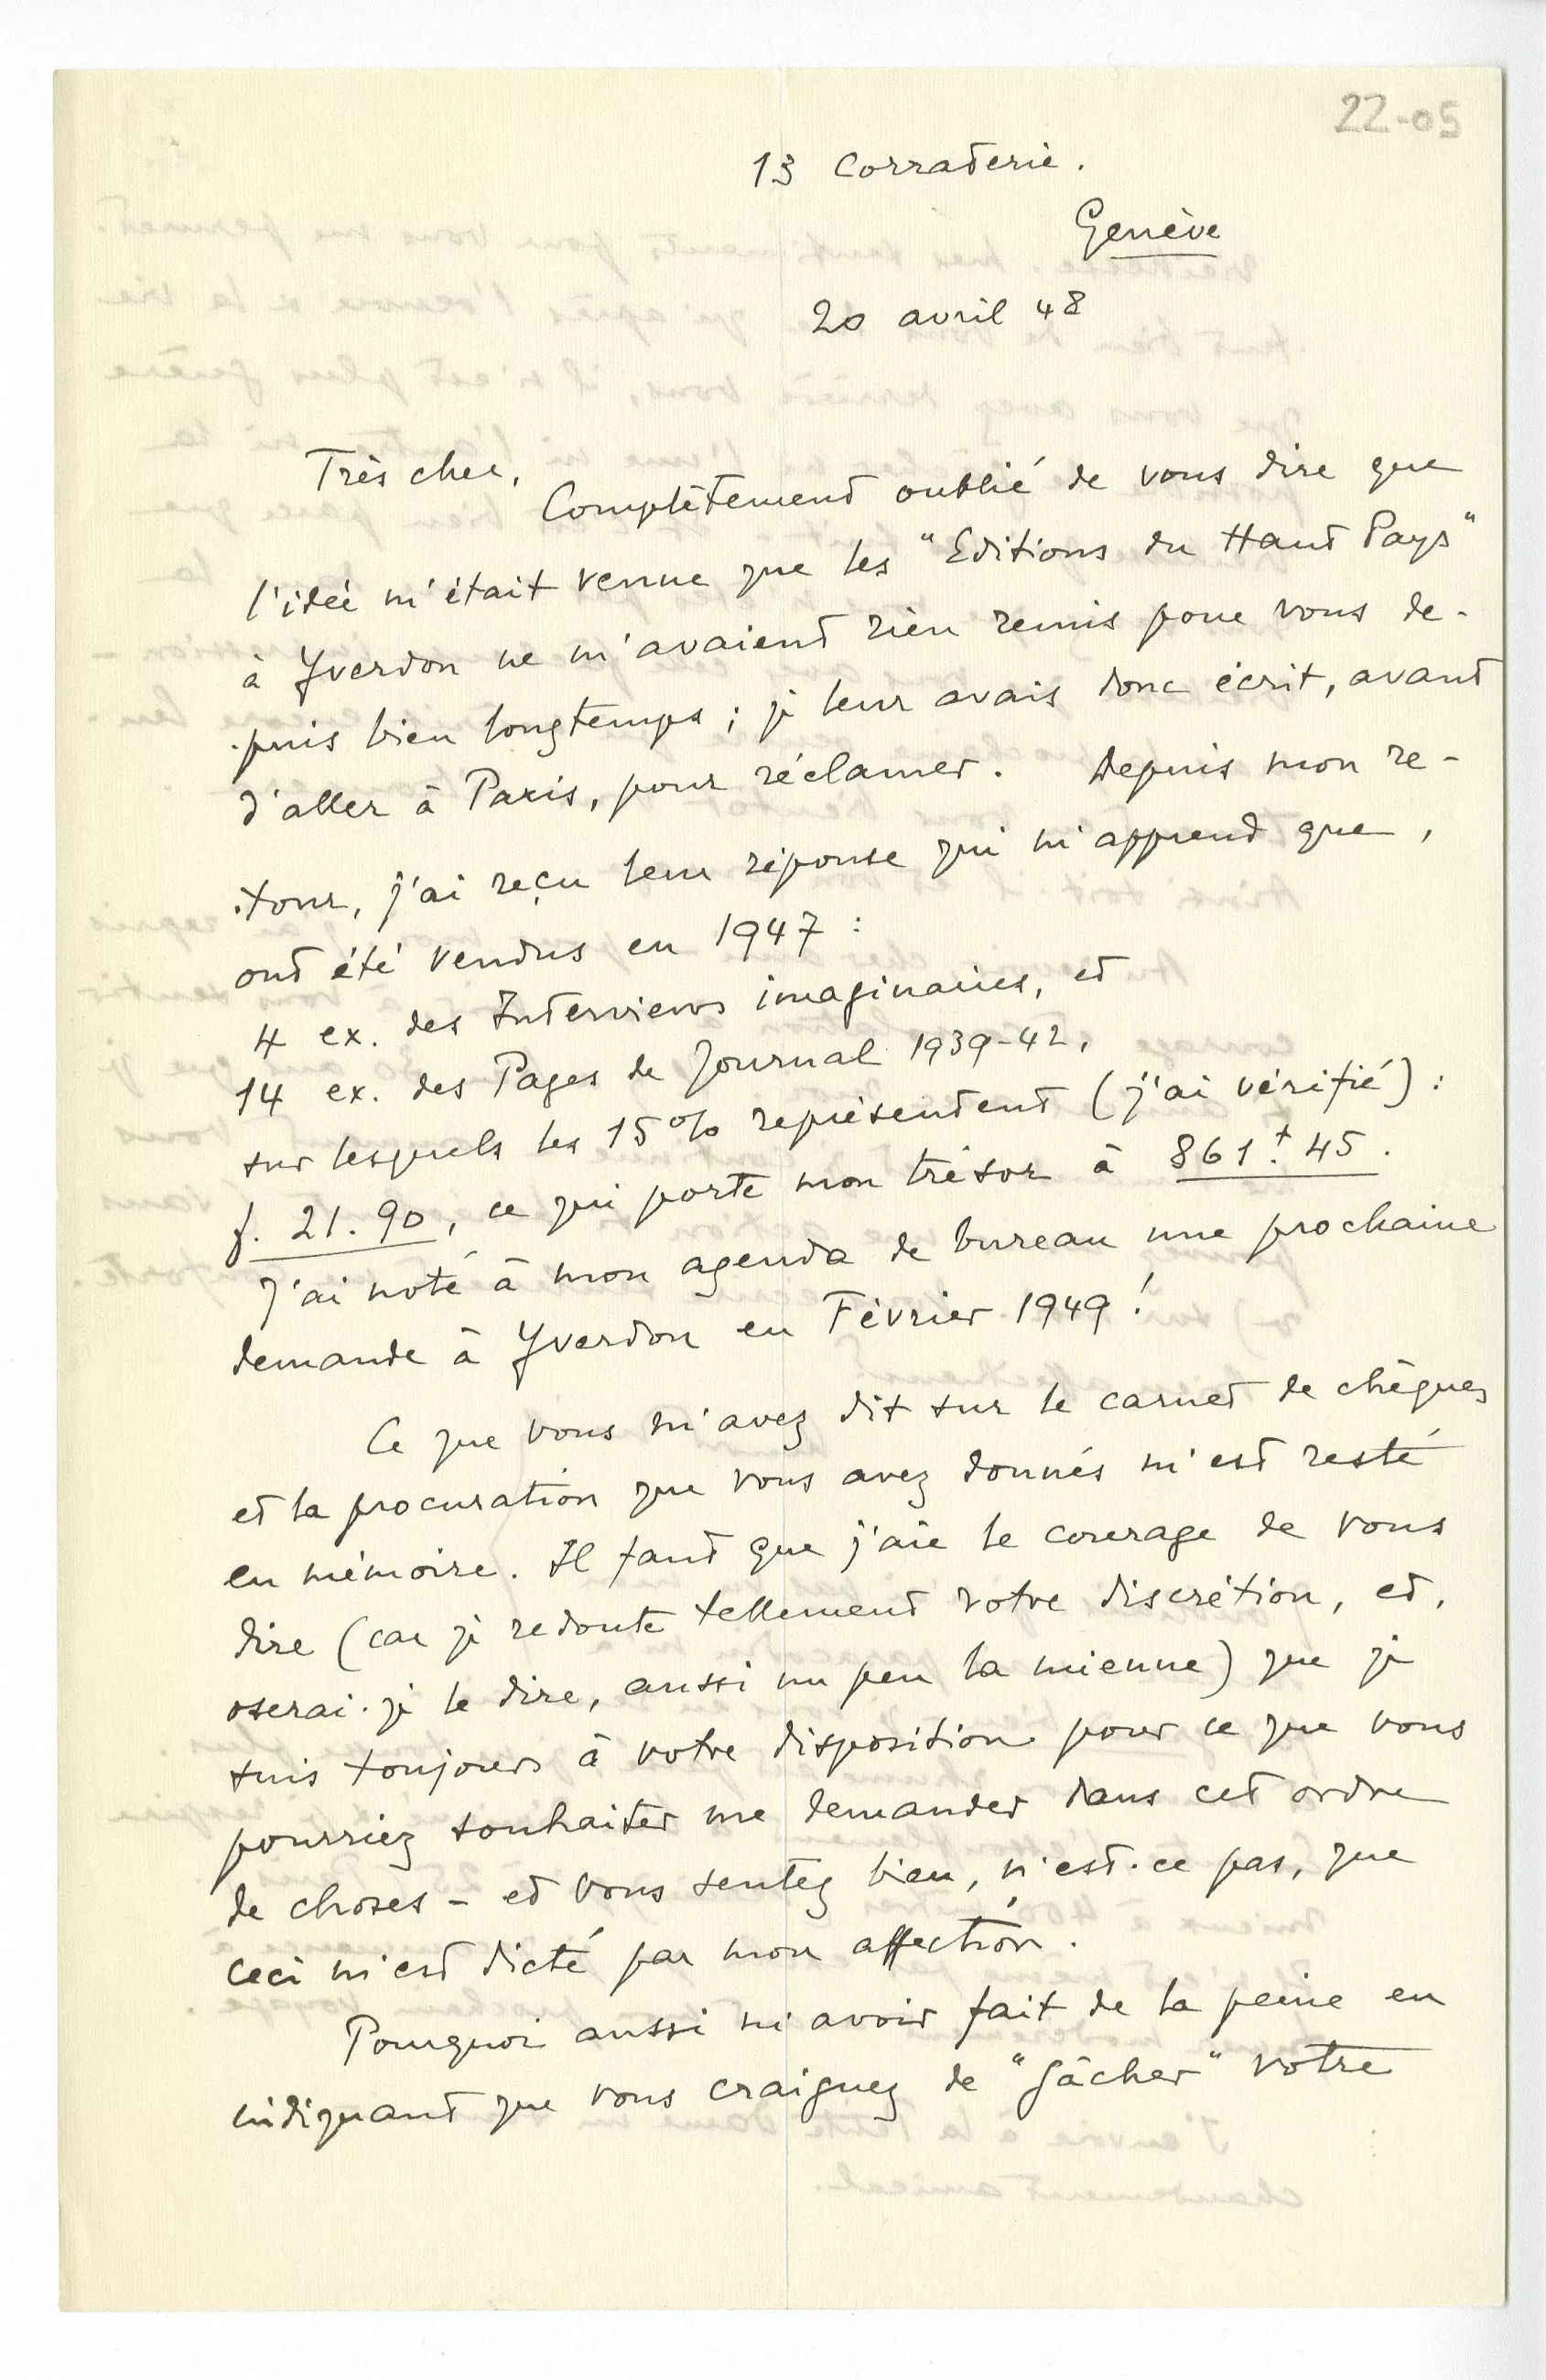 22-05
13 Corraterie.
Genève
20 avril 48
Très cher,
Complètement oublié de vous dire que
l'idée m'était venue que les "Editions du Haut Pays"
à Yverdon ne m'avaient rien remis pour vous de-
-puis bien longtemps ; je leur avais donc écrit, avant
d'aller à Paris, pour réclamer. Depuis mon re-
-tour, j'ai reçu leur réponse qui m'apprend que,
ont été vendus en 1947 :
4 ex. des Interviews imaginaires, et
14 ex. des Pages de Journal 1939-42,
sur lesquels les 15% représentent (j'ai vérifié) :
f. 21.90, ce qui porte mon trésor à 861f.45.
J'ai noté à mon agenda de bureau une prochaine
demande à Yverdon en Février 1949 !
Ce que vous m'avez dit sur le carnet de chèques
et la procuration que vous avez donnés m'est resté
en mémoire. Il faut que j'aie le courage de vous
dire (car je redoute tellement votre discrétion, et,
oserai-je le dire, aussi un peu la mienne) que je
suis toujours à votre disposition pour ce que vous
pourriez souhaiter me demander dans cet ordre
de choses - et vous sentez bien, n'est-ce pas, que
ceci m'est dicté par mon affection.
Pourquoi aussi m'avoir fait de la peine en
indiquant que vous craignez de "gâcher" votre